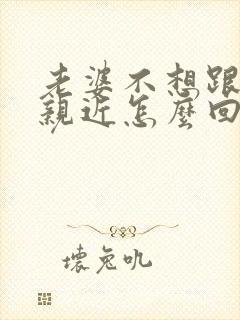 老婆不想跟
親近怎麼回
壞兔吼